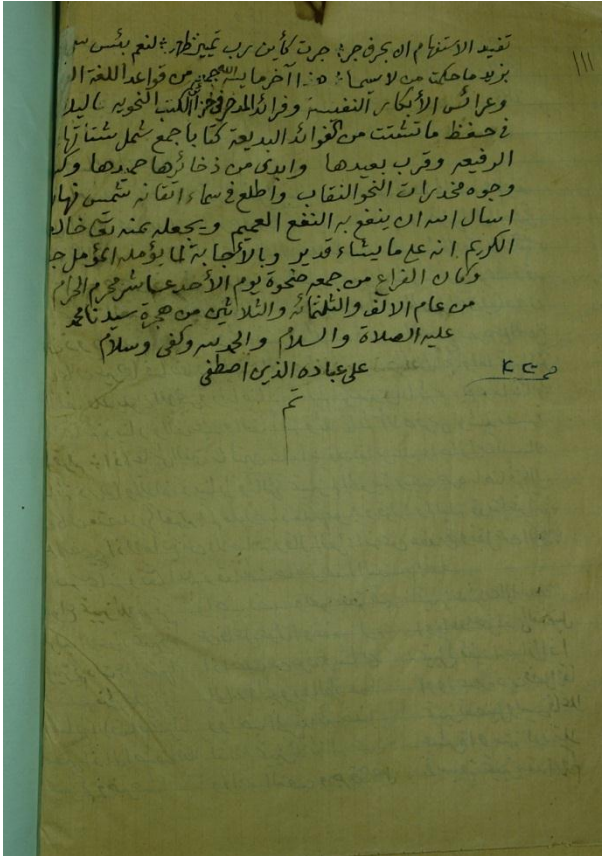 ١١١
تفيد الاستفهام ان بحرف جر : جرت كأين برب تمييز ظهر : لنعم بئس
بزيد ما حكت من لاسيما : هذا آخر ما يسر الله جمعه من قواعد اللغة
وعرائس الأبكار النفيسة وفرائد المدخر في خزائن الكتب النحويه
في حفظ ما تشتت من الفوائد البديعة كتابا جمع شمل شتاتها
الرفيعه وقرب بعيدها وابدى من ذخائرها حميدها
وجوه مخدرات النحو النقاب واطلع في سماء اتقانه شمس
اسال الله ان ينفع به النفع العميم ويجعله بمنه تعالى
الكريم انه على ما يشاء قدير وبالأجابة لما يؤمله المؤمل
وكان الفراغ من جمعه ضحوة يوم الأحد عاشر محرم الحرام
من عام الالف والثلثمائة والثلاثين من هجرة سيدنا محمد
عليه الصلاة والسلام والحمد لله وكفى وسلام
على عباده الذين اصطفى
تم